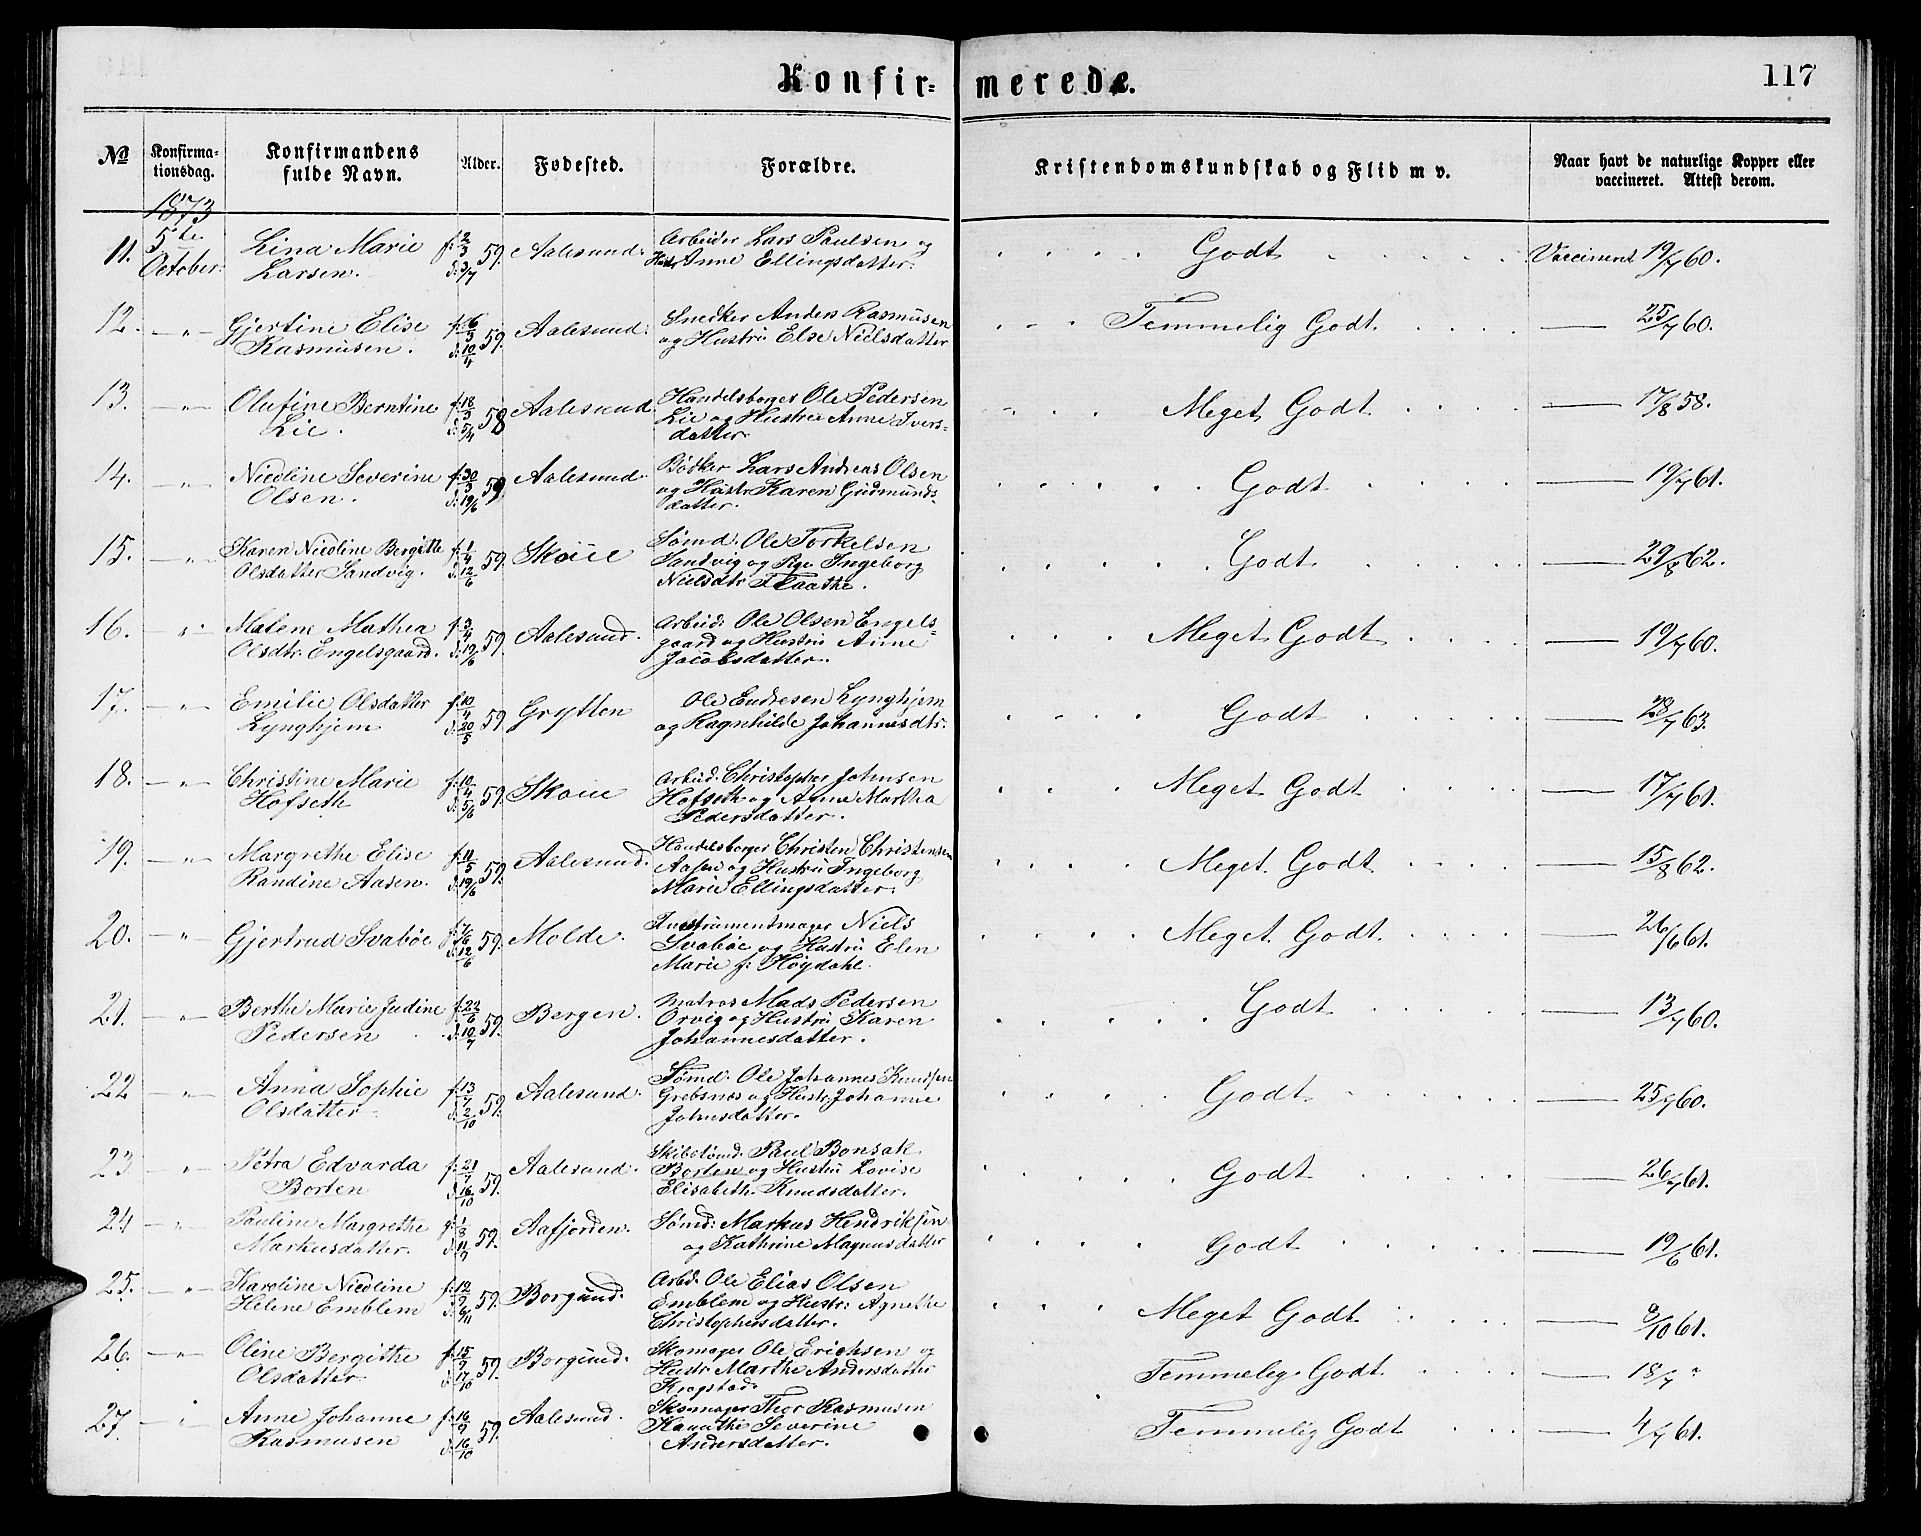 Konfir= merede. 117
№ Konfirma-tionsdag. Konfirmandens fulde Navn. Alder. Fødested. Forældre. Kristendomskundskab og Flid m v. Naar havt de naturlige Kopper eller vaccineret. Attest derom.
1873
11. 5te October. Lina Marie Larsen. f: 2/3 d: 3/7 59. Aalesund. Arbeider Lars Paulsen og Hustr Anne Ellingsdatter. Godt Vaccineret 19/7 60.
12. — " — Gjertine Elise Rasmusen. f: 16/3 d: 10/4 59. Aalesund. Snedker Anders Rasmusen og Hustru Else Nielsdatter Temmelig Godt. — 25/7 60.
13. — " — Olufine Berntine Lie. f: 18/3 d: 5/4 58 Aalesund. Handelsborger Ole Pedersen Lie og Hustru Anne Ivers= datter. Meget Godt — 17/8 58.
14. — " — Nicoline Severine Olsen. f: 30/3 d: 19/6 59 Aalesund. Bødker Lars Andreas Olsen og Hustr. Karen Gudmunds= datter. Godt — 19/7 61.
15. — " — Karen Nicoline Bergitte Olsdatter Sandvig. f: 1/4 d: 12/6 59. Skoue Sømd. Ole Torkelsen Sandvig og Ingeborg Nielsdtr Flaathe. Godt — 29/8 62.
16. — " — Malene Mathea Olsdtr. Engelsgaard. f: 3/4 d: 19/6 59. Aalesund. Arbeid: Ole Olsen Engels= gaard og Hustru Anne Jacobsdatter. Meget Godt — 19/7 60.
17. — " — Emilie Olsdatter Lynghjem f: 10/4 d: 20/5 59 Grytten Ole Endresen Lynghjem og Ragnhilde Johannesdtr. Godt — 28/7 63.
18. — " — Christine Marie Hofseth f: 10/4 d: 5/6 59. Skoue Arbeid. Christopher Johnsen Hofseth og Anne Martha Pedersdatter. Meget Godt — 17/7 61.
19. — " — Margrethe Elise Randine Aasen. f: 11/5 d: 19/6 59. Aalesund. Handelsborger Christen Christensen Aasen og Hustru Ingeborg Marie Ellingsdatter. Meget Godt — 15/8 62.
20. — " — Gjertrud Svabøe f: 7/6 d: 12/6 59. Molde. Instrumentmager Niels Svabøe og Hustru Elen Marie f: Høydahl. Meget Godt — 26/6 61.
21. — " — Berthe Marie Judine Pedersen f: 22/6 d: 10/7 59. Bergen. Matros Mads Pedersen Orvig og Hustru Karen Johannesdatter. Godt — 13/7 60.
22 — " — Anna Sophie Olsdatter f: 13/7 d: 2/10 59. Aalesund. Sømd. Ole Johannes Knudsen Grebsnæs og Hustr. Johanne Johnsdatter. Godt — 25/7 60.
23 — " — Petra Edvarda Borten f: 21/7 d: 16/10 59. Aalesund. Skibstømd. Paul Bonsak Borten og Hustru Lovise Elisabeth Knudsdatter. Godt — 26/7 61.
24 — " — Pauline Margrethe Markusdatter. f: 1/8 d: 11/9 59. Aafjorden. Sømd: Markus Hendriksen og Kathrine Magnusdatter Godt — 19/6 61.
25. — " — Karoline Nicoline Helene Emblem f: 12/9 d: 6/11 59. Borgund. Arbd: Ole Elias Olsen Emblem og Hustr: Agnethe Christophersdatter. Meget Godt — 9/10 61.
26. — " — Oline Bergithe Olsdatter f: 15/9 d: 17/10 59. Borgund. Skomager Ole Erichsen og Hustr Marthe Andersdatter Krogstad. Temmelig Godt — 18/7 "
27. — " — Anne Johanne Rasmusen f: 16/9 d: 16/10 59. Aalesund. Skomager Thor Rasmusen Severine Andersdatter. Temmelig Godt — 4/7 61.